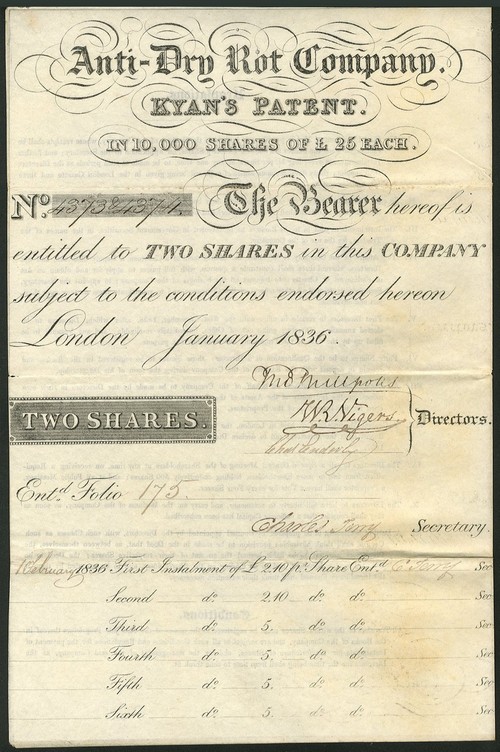 Anti-Dry Rot Company.
KYAN'S PATENT.
IN 10,000 SHARES OF £ 25 EACH.
No. 4373 & 4374. The Bearer hereof is
entitled to TWO SHARES in this COMPANY
subject to the conditions endorsed hereon
London January 1836.
TWO SHARES.
Directors.
Entd. Folio 175.
Charles Terry Secretary.
February 1836 First Instalment of £ 2.10 pr. Share Entd. C Terry Sec
Second do. 2.10 do. do. Sec
Third do. 5. do. do. Sec
Fourth do. 5. do. do. Sec
Fifth do. 5. do. do. Sec
Sixth do. 5. do. do. Sec